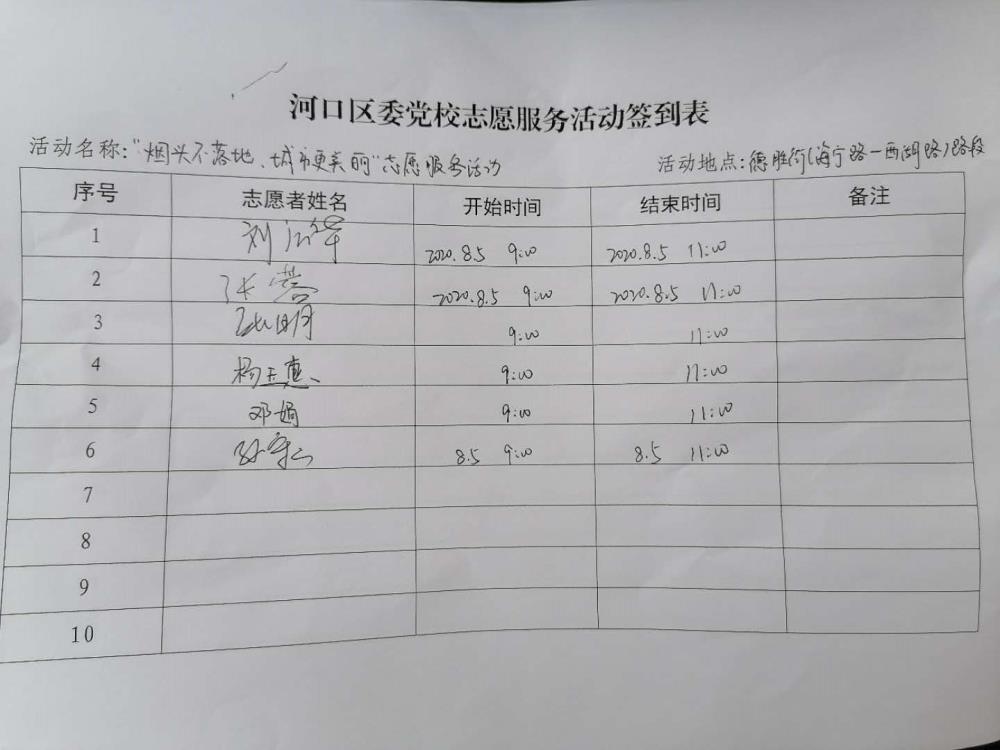 河口区委党校志愿服务活动签到表
活动名称:"烟头不落地、城市更美丽"志愿服务活动
活动地点:德胜街(海宁路一西湖路)路段
序号 志愿者姓名 开始时间 结束时间 备注
1 刘 2020.8.5 9:00 2020.8.5 11:00
2 张 2020.8.5 9:00 2020.8.5 11:00
3 9:00 11:00
4 杨玉惠 9:00 11:00
5 邓娟 9:00 11:00
6 8.5 9:00 8.5 11:00
7
8
9
10